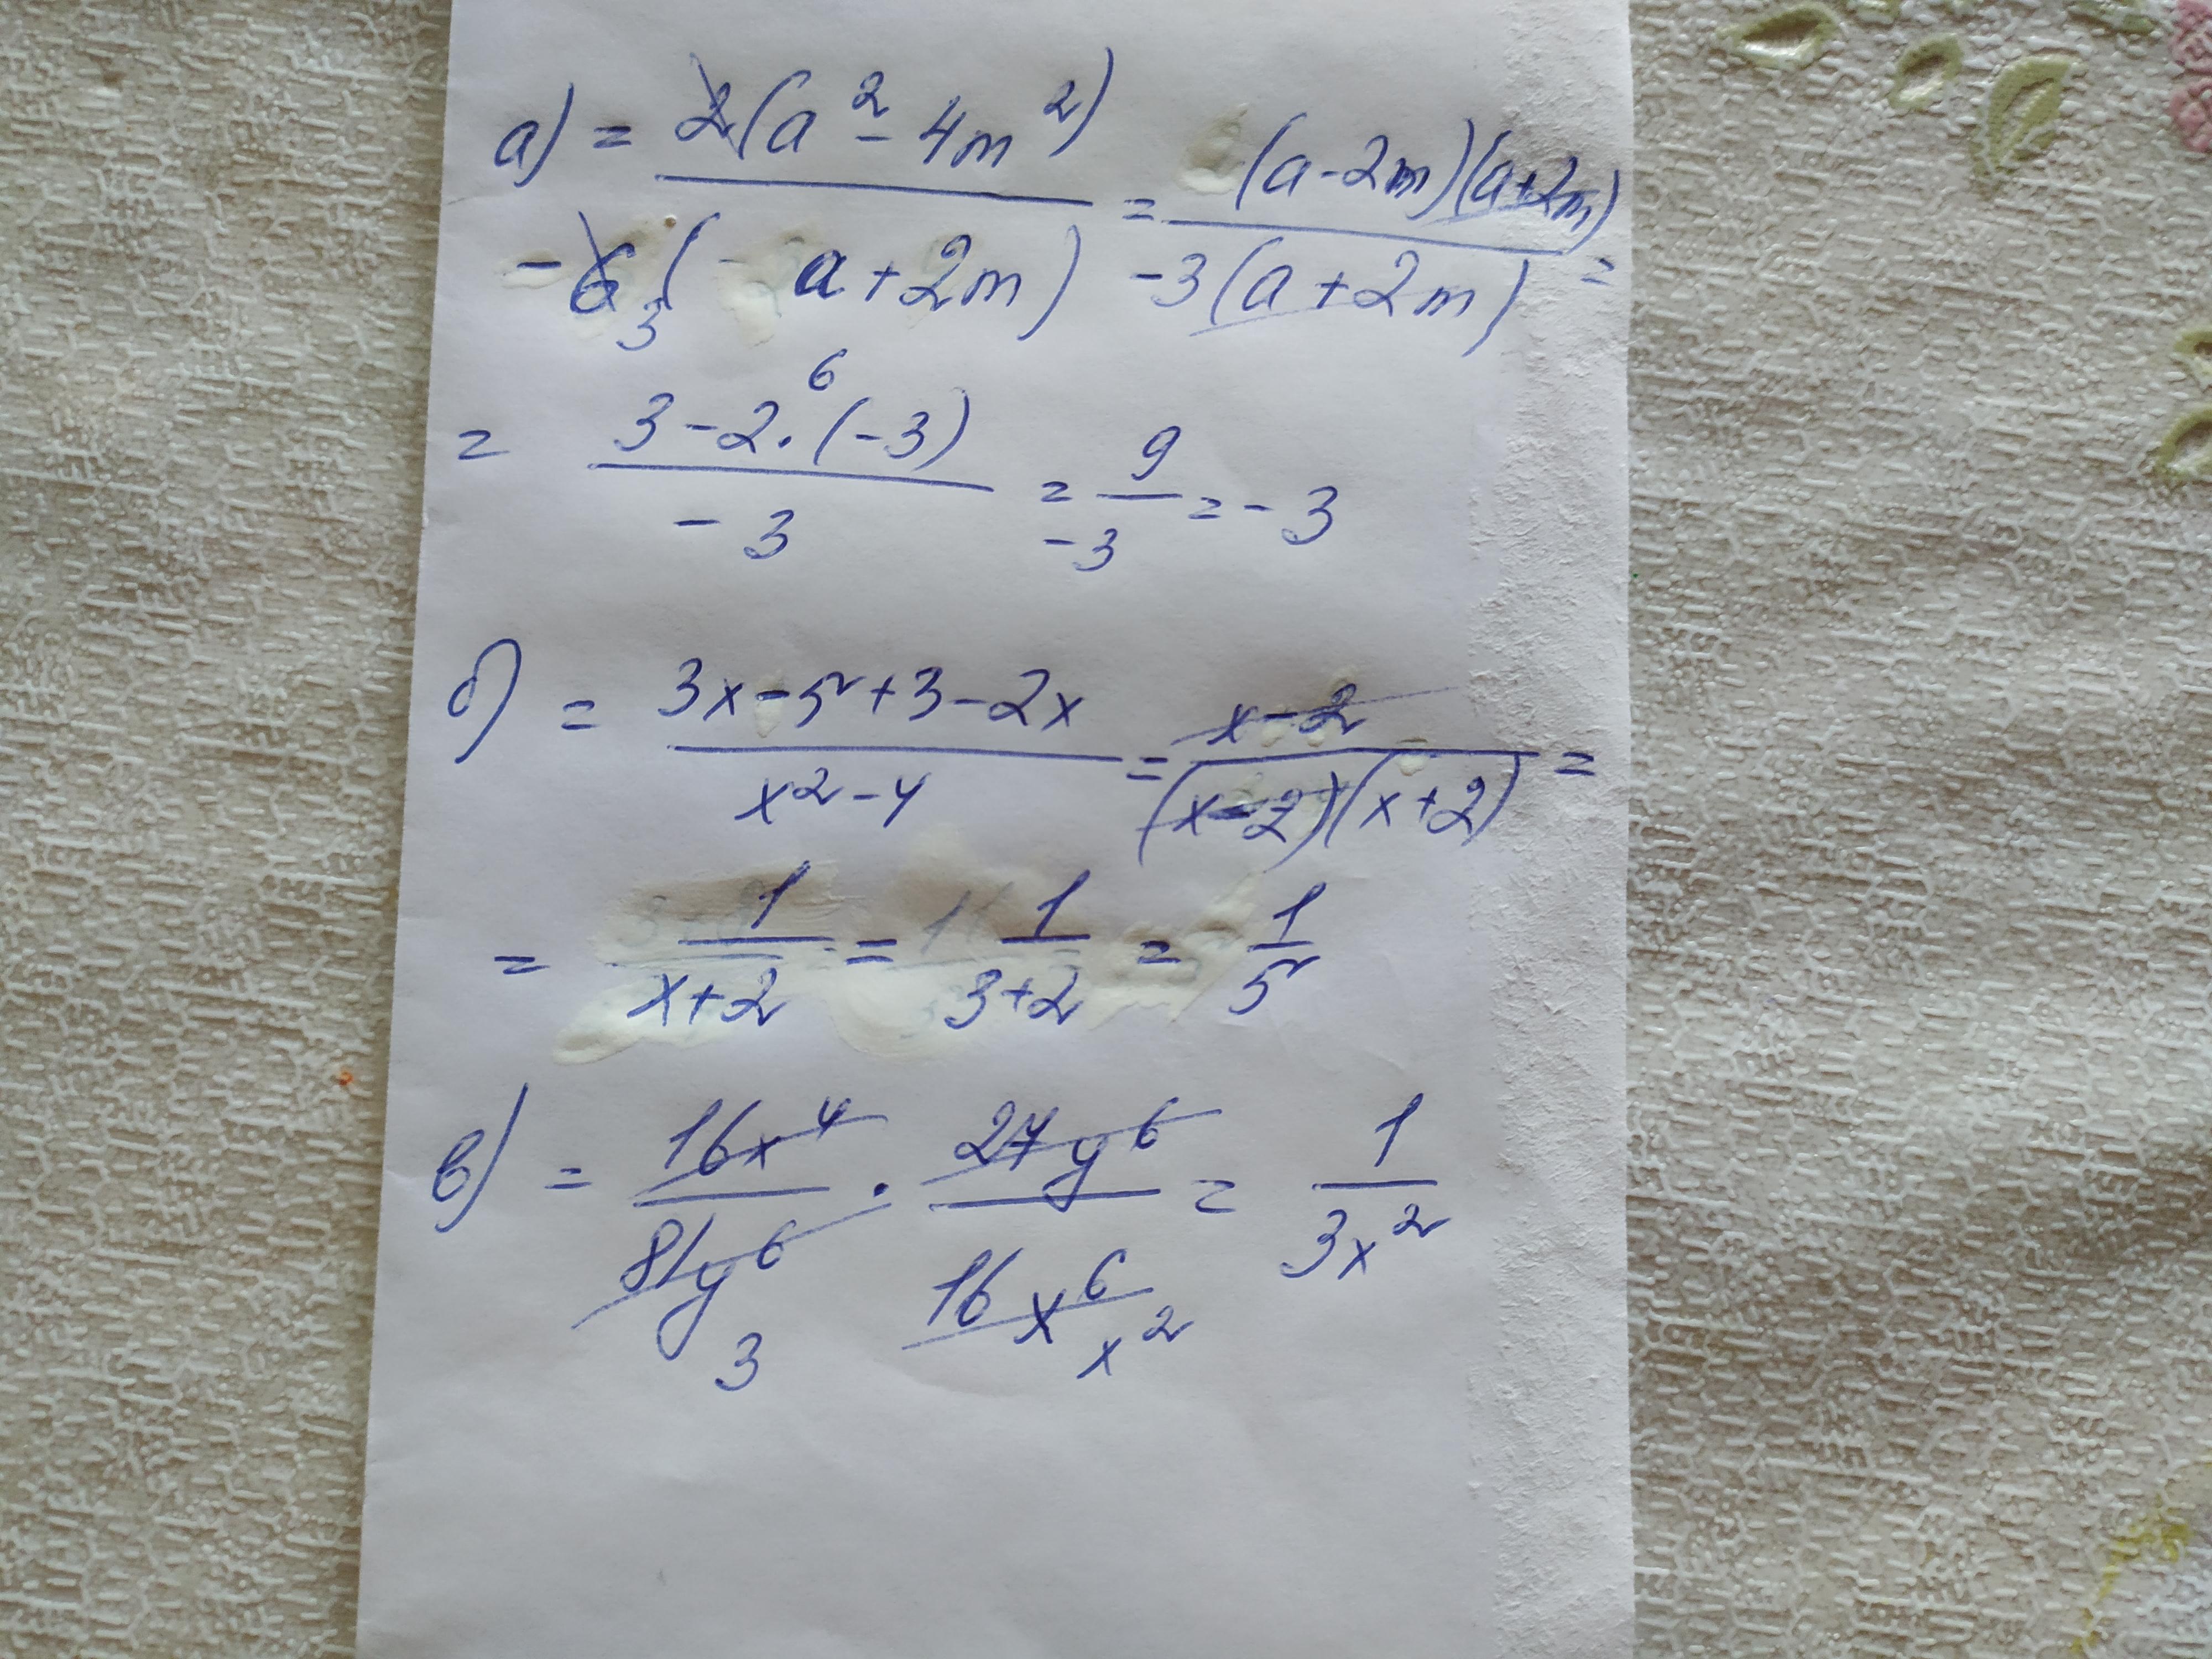 а) = 2(a² - 4m²) / -6 3 (a + 2m) = (a-2m)(a+2m) / -3(a+2m) =
= 3-2·(-3) 6 / -3 = 9 / -3 = -3
б) = 3x-5+3-2x / x²-4 = x-2 / (x-2)(x+2) =
= 1 / x+2 = 1 / 3+2 = 1 / 5
в) = 16x⁴ / 81y⁶ 3 · 27y⁶ / 16x⁶ x² = 1 / 3x²